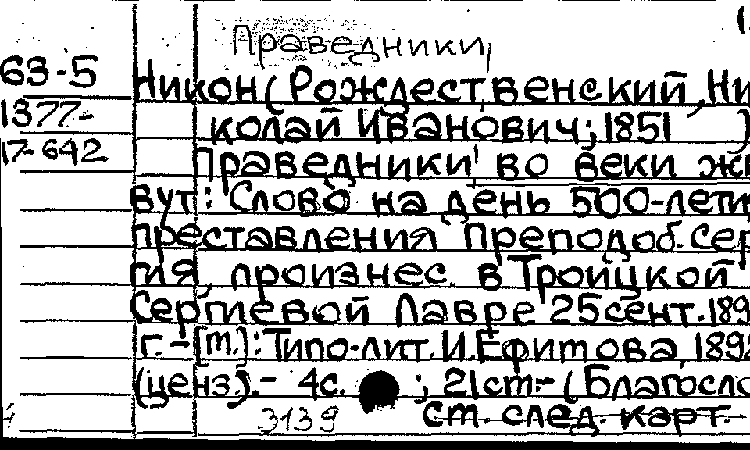 Праведники
63-5 Никон (Рождественский, Ни
1377- колай Иванович; 1851 )
17-642 Праведники во веки жи
вут: Слово на день 500-лети
преставления Преподоб. Сер
гия, произнес. в Троицкой
Сергиевой Лавре 25 сент. 189
г. - [М.]: Типо-лит. И. Ефимова, 189
(ценз). - 4с. ; 21 см. - (Благосло
3139 см. след. карт.